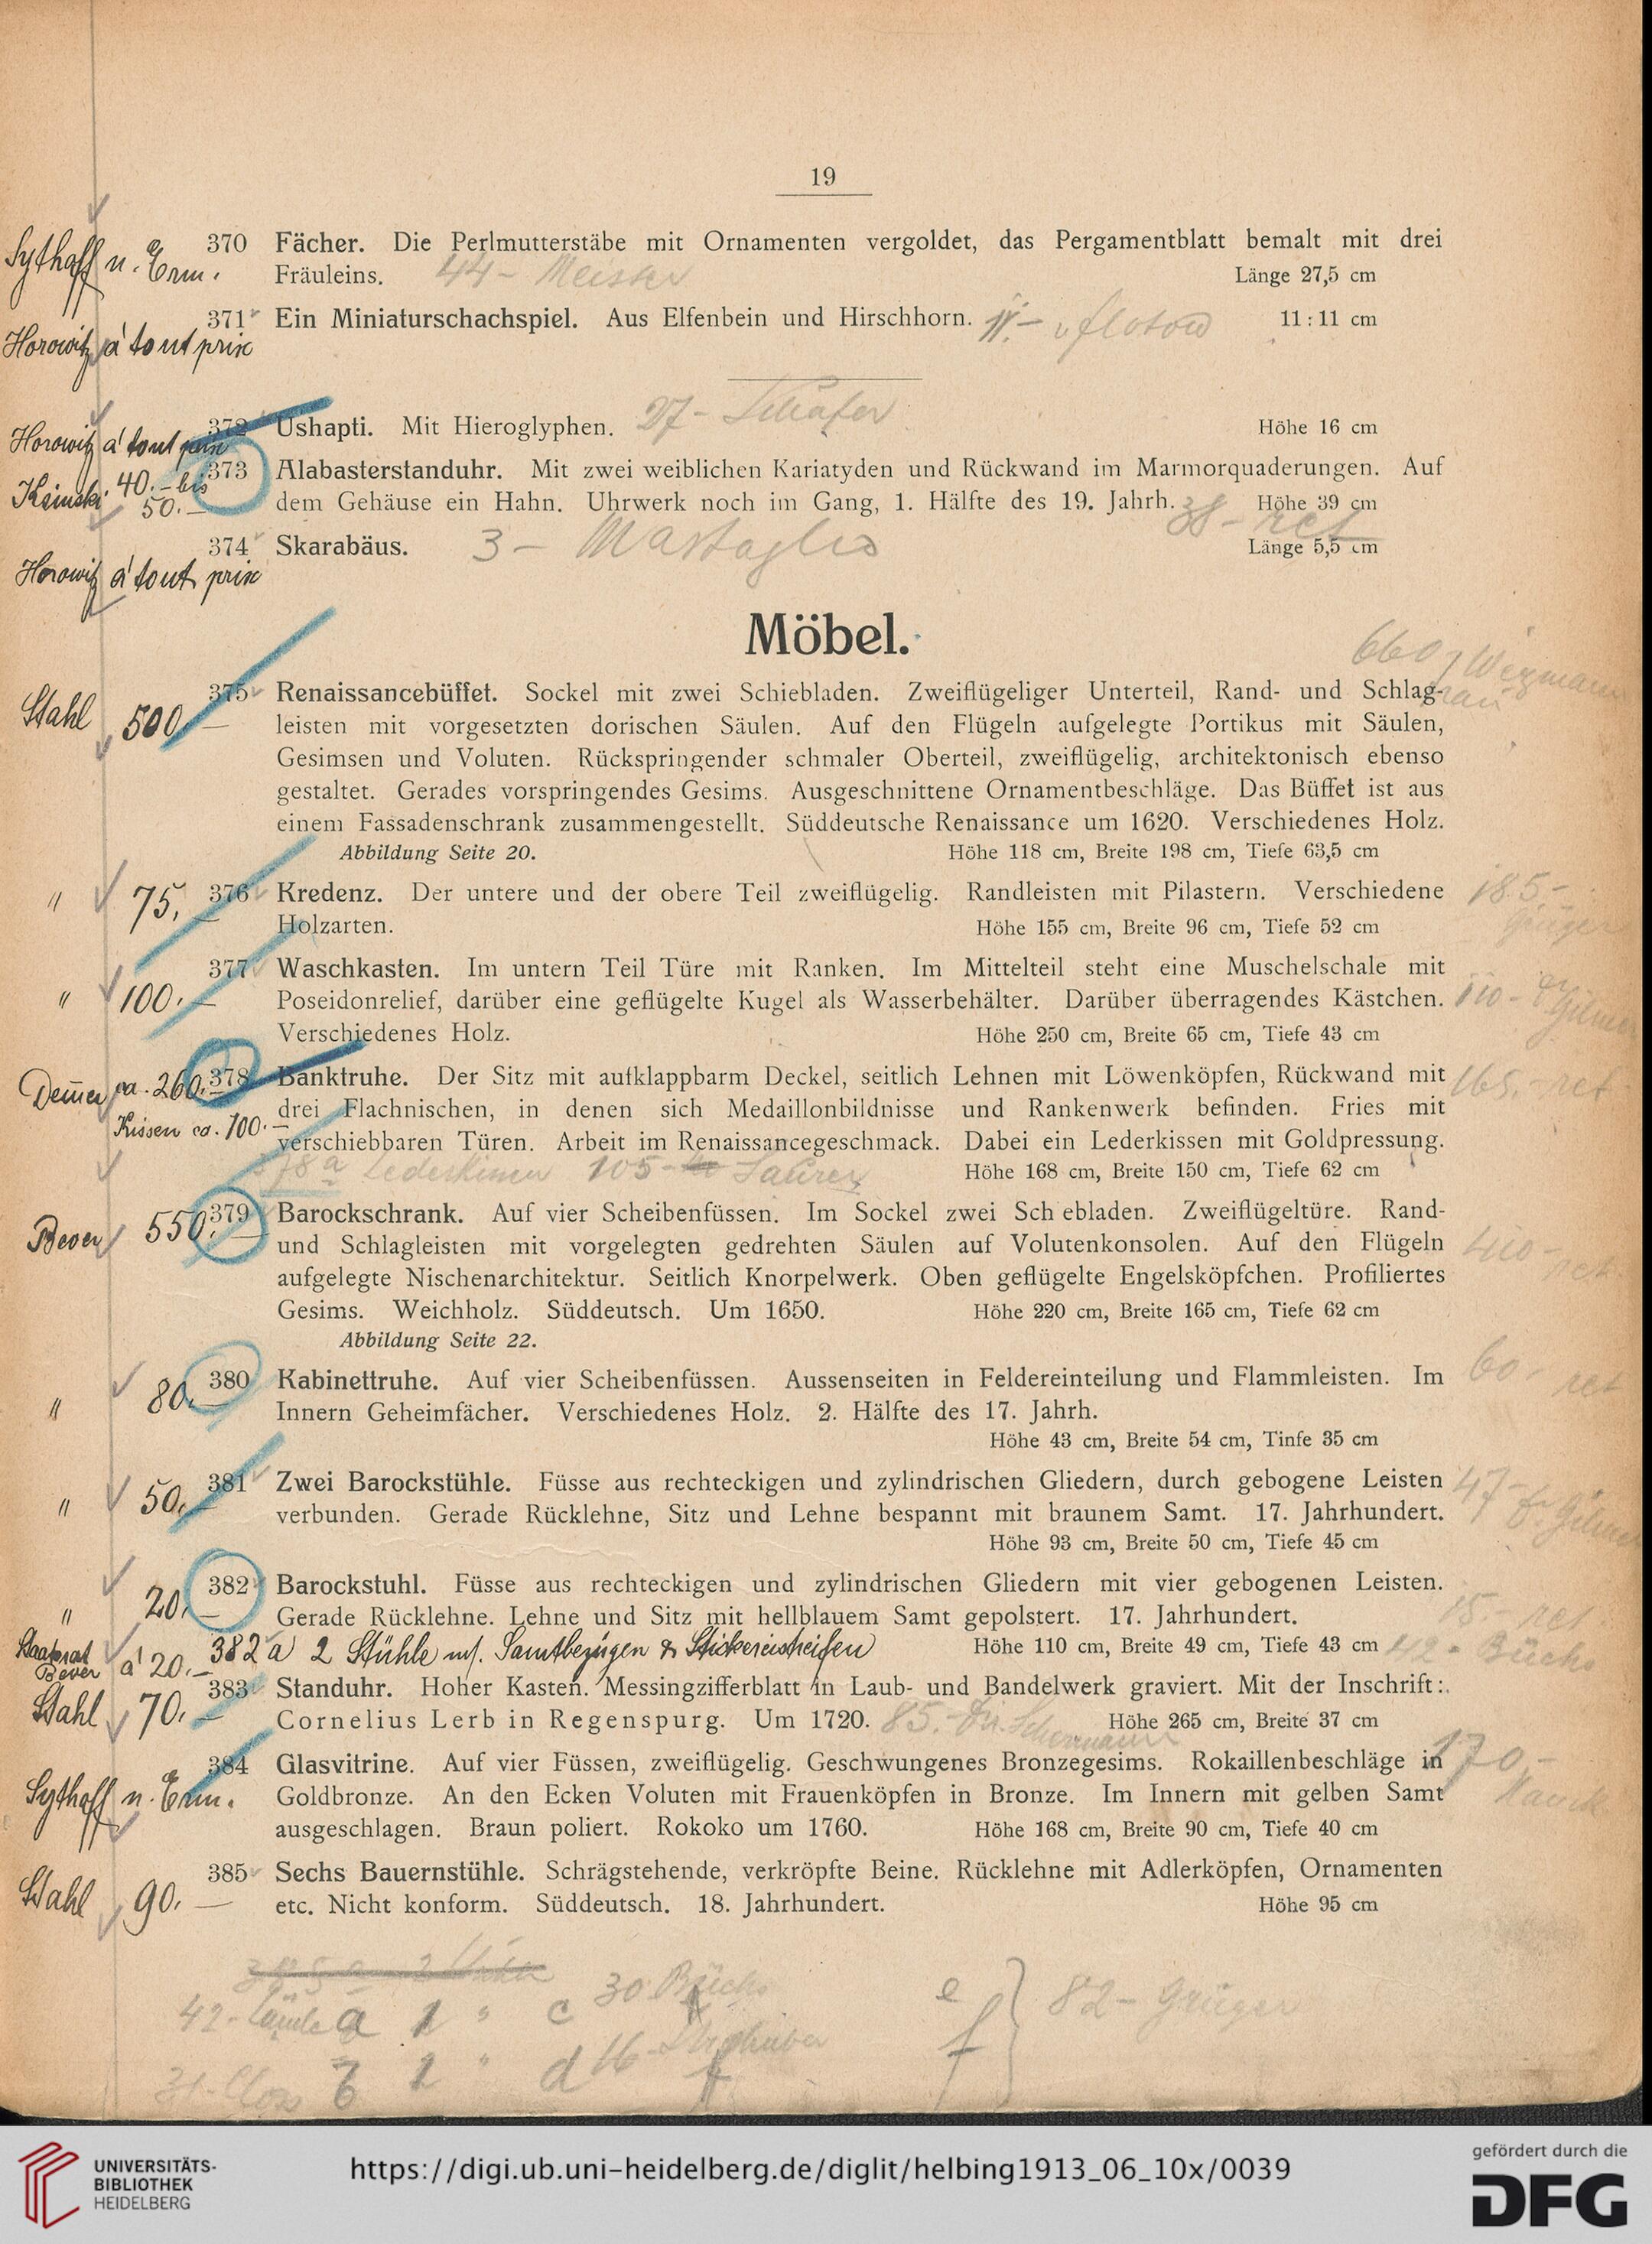 19
Sythoff u. Erm.
370 Fächer. Die Perlmutterstäbe mit Ornamenten vergoldet, das Pergamentblatt bemalt mit drei
Fräuleins. 44- Meister Länge 27,5 cm
371 Ein Miniaturschachspiel. Aus Elfenbein und Hirschhorn. 11.- v flotow 11:11 cm
Horowitz á tout prix
372 Ushapti. Mit Hieroglyphen. 27- Schäfer Höhe 16 cm
Horowitz á tout prix
373 Alabasterstanduhr. Mit zwei weiblichen Kariatyden und Rückwand im Marmorquaderungen. Auf
40.- bis
50.-
dem Gehäuse ein Hahn. Uhrwerk noch im Gang, 1. Hälfte des 19. Jahrh. 38- ret Höhe 39 cm
374 Skarabäus. 3- Länge 5,5 cm
Horowitz á tout prix
Möbel.
660
Stahl 500.-
375 Renaissancebüffet. Sockel mit zwei Schiebladen. Zweiflügeliger Unterteil, Rand- und Schlag-
leisten mit vorgesetzten dorischen Säulen. Auf den Flügeln aufgelegte Portikus mit Säulen,
Gesimsen und Voluten. Rückspringender schmaler Oberteil, zweiflügelig, architektonisch ebenso
gestaltet. Gerades vorspringendes Gesims. Ausgeschnittene Ornamentbeschläge. Das Büffet ist aus
einem Fassadenschrank zusammengestellt. Süddeutsche Renaissance um 1620. Verschiedenes Holz.
Abbildung Seite 20. Höhe 118 cm, Breite 198 cm, Tiefe 63,5 cm
" 75.- 376 Kredenz. Der untere und der obere Teil zweiflügelig. Randleisten mit Pilastern. Verschiedene 185.-
Holzarten. Höhe 155 cm, Breite 96 cm, Tiefe 52 cm
377 Waschkasten. Im untern Teil Türe mit Ranken. Im Mittelteil steht eine Muschelschale mit
" 100.- Poseidonrelief, darüber eine geflügelte Kugel als Wasserbehälter. Darüber überragendes Kästchen. 110-
Verschiedenes Holz. Höhe 250 cm, Breite 65 cm, Tiefe 43 cm
ca. 260.- 378 Banktruhe. Der Sitz mit aufklappbarm Deckel, seitlich Lehnen mit Löwenköpfen, Rückwand mit 165.- ret
Kissen ca. 100.- drei Flachnischen, in denen sich Medaillonbildnisse und Rankenwerk befinden. Fries mit
verschiebbaren Türen. Arbeit im Renaissancegeschmack. Dabei ein Lederkissen mit Goldpressung.
378a Lederkissen 105- Höhe 168 cm, Breite 150 cm, Tiefe 62 cm
Bever 550.- 379 Barockschrank. Auf vier Scheibenfüssen. Im Sockel zwei Sch ebladen. Zweiflügeltüre. Rand-
und Schlagleisten mit vorgelegten gedrehten Säulen auf Volutenkonsolen. Auf den Flügeln 400- ret
aufgelegte Nischenarchitektur. Seitlich Knorpelwerk. Oben geflügelte Engelsköpfchen. Profiliertes
Gesims. Weichholz. Süddeutsch. Um 1650. Höhe 220 cm, Breite 165 cm, Tiefe 62 cm
Abbildung Seite 22.
" 80.- 380 Kabinettruhe. Auf vier Scheibenfüssen. Aussenseiten in Feldereinteilung und Flammleisten. Im 60.- ret
Innern Geheimfächer. Verschiedenes Holz. 2. Hälfte des 17. Jahrh.
Höhe 43 cm, Breite 54 cm, Tinfe 35 cm
" 50.- 381 Zwei Barockstühle. Füsse aus rechteckigen und zylindrischen Gliedern, durch gebogene Leisten 47-
verbunden. Gerade Rücklehne, Sitz und Lehne bespannt mit braunem Samt. 17. Jahrhundert.
Höhe 93 cm, Breite 50 cm, Tiefe 45 cm
" 20.- 382 Barockstuhl. Füsse aus rechteckigen und zylindrischen Gliedern mit vier gebogenen Leisten.
Gerade Rücklehne. Lehne und Sitz mit hellblauem Samt gepolstert. 17. Jahrhundert. 15.- ret
Staatsrat Bever á 20.- 382a 2 Stühle m. Samtbezügen & Stickereistreifen Höhe 110 cm, Breite 49 cm, Tiefe 43 cm 42- Büchs
Stahl 70.- 383 Standuhr. Hoher Kasten. Messingzifferblatt in Laub- und Bandelwerk graviert. Mit der Inschrift:
Cornelius Lerb in Regenspurg. Um 1720. 85.- Höhe 265 cm, Breite 37 cm
384 Glasvitrine. Auf vier Füssen, zweiflügelig. Geschwungenes Bronzegesims. Rokaillenbeschläge in 170.-
Sythoff u. Erm. Goldbronze. An den Ecken Voluten mit Frauenköpfen in Bronze. Im Innern mit gelben Samt
ausgeschlagen. Braun poliert. Rokoko um 1760. Höhe 168 cm, Breite 90 cm, Tiefe 40 cm
385 Sechs Bauernstühle. Schrägstehende, verkröpfte Beine. Rücklehne mit Adlerköpfen, Ornamenten
Stahl 90.- etc. Nicht konform. Süddeutsch. 18. Jahrhundert. Höhe 95 cm
42- a 1 " c 30 Büchs e
b 1 " d 16- f } 82- Grüger
UNIVERSITÄTS-
BIBLIOTHEK
HEIDELBERG
https://digi.ub.uni-heidelberg.de/diglit/helbing1913_06_10x/0039
gefördert durch die
DFG